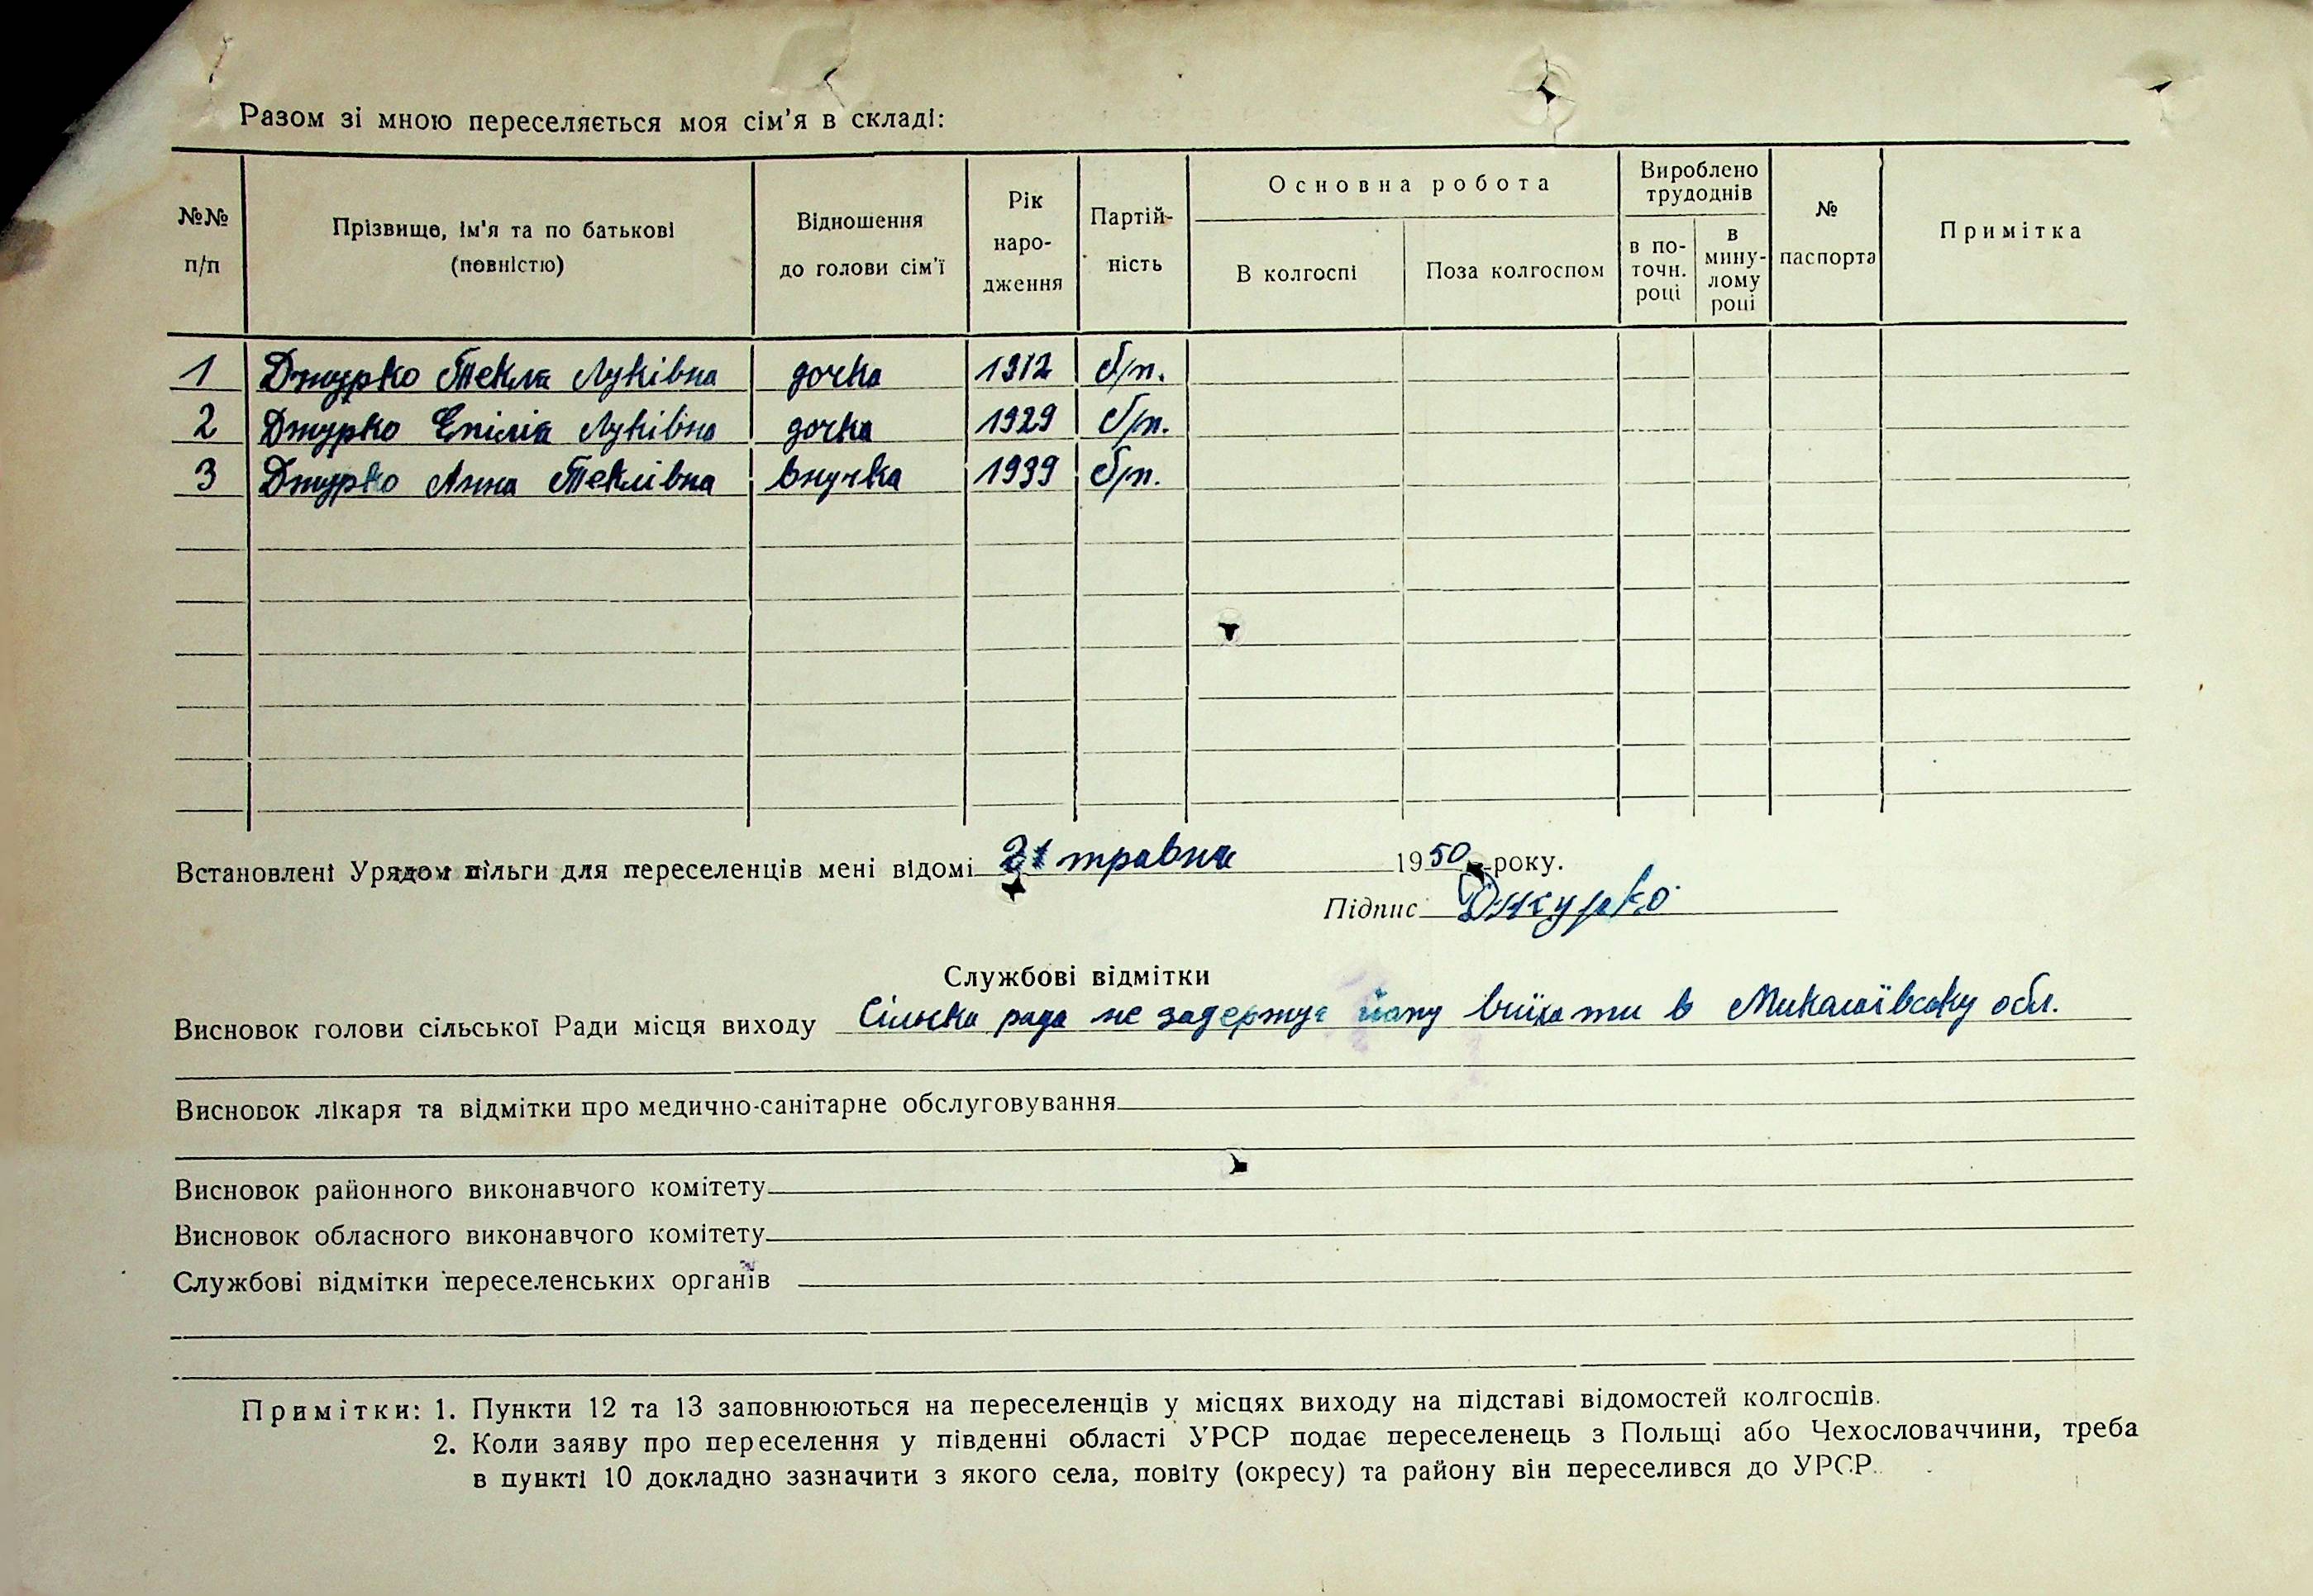 Разом зі мною переселяється моя сім'я в складі:
№№ п/п
Прізвище, ім'я та по батькові (повністю)
Відношення до голови сім'ї
Рік наро-дження
Партій-ність
Основна робота
В колгоспі
Поза колгоспом
Вироблено трудоднів
в по-точн. році
в мину-лому році
№ паспорта
Примітка
1 Джурко Текля Луківна дочка 1912 б/п.
2 Джурко Емілія Луківна дочка 1929 б/п.
3 Джурко Анна Теклівна внучка 1939 б/п.
Встановлені Урядом пільги для переселенців мені відомі 21 травня 1950 року.
Підпис Джурко
Службові відмітки
Висновок голови сільської Ради місця виходу Сільська рада не задержує виїхати в Миколаївську обл.
Висновок лікаря та відмітки про медично-санітарне обслуговування
Висновок районного виконавчого комітету
Висновок обласного виконавчого комітету
Службові відмітки переселенських органів
Примітки: 1. Пункти 12 та 13 заповнюються на переселенців у місцях виходу на підставі відомостей колгоспів.
2. Коли заяву про переселення у південні області УРСР подає переселенець з Польщі або Чехословаччини, треба
в пункті 10 докладно зазначити з якого села, повіту (окресу) та району він переселився до УРСР.